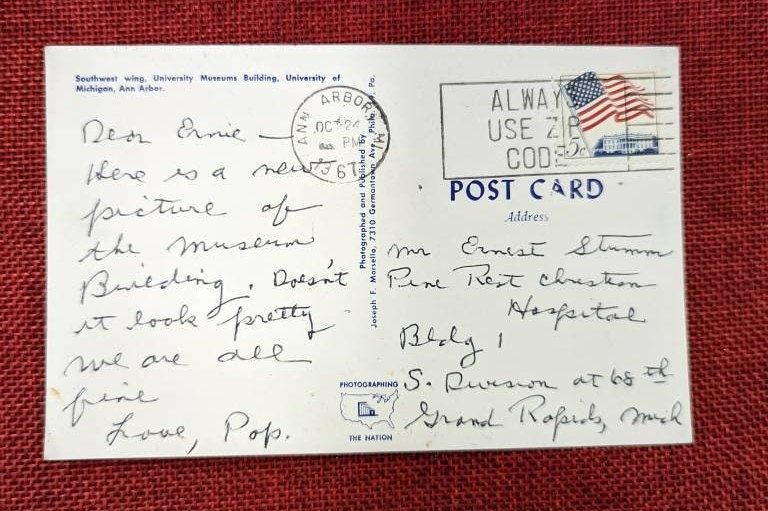 Southwest wing, University Museums Building, University of
Michigan, Ann Arbor.
Dear Ernie —
Here is a new
picture of
the Museum
Building. Doesn't
it look pretty
we are all
fine
Love, Pop.
Photographed and Published by
Joseph F. Morsello, 7310 Germantown Ave., Phila., Pa.
ANN ARBOR, MI
OCT 24
PM
1967
ALWAY
USE ZIP
CODE
5c
POST CARD
Address
Mr Ernest Stumm
Pine Rest Christian
Hospital
Bldg 1
S. Division at 68th
Grand Rapids, Mich
PHOTOGRAPHING
THE NATION